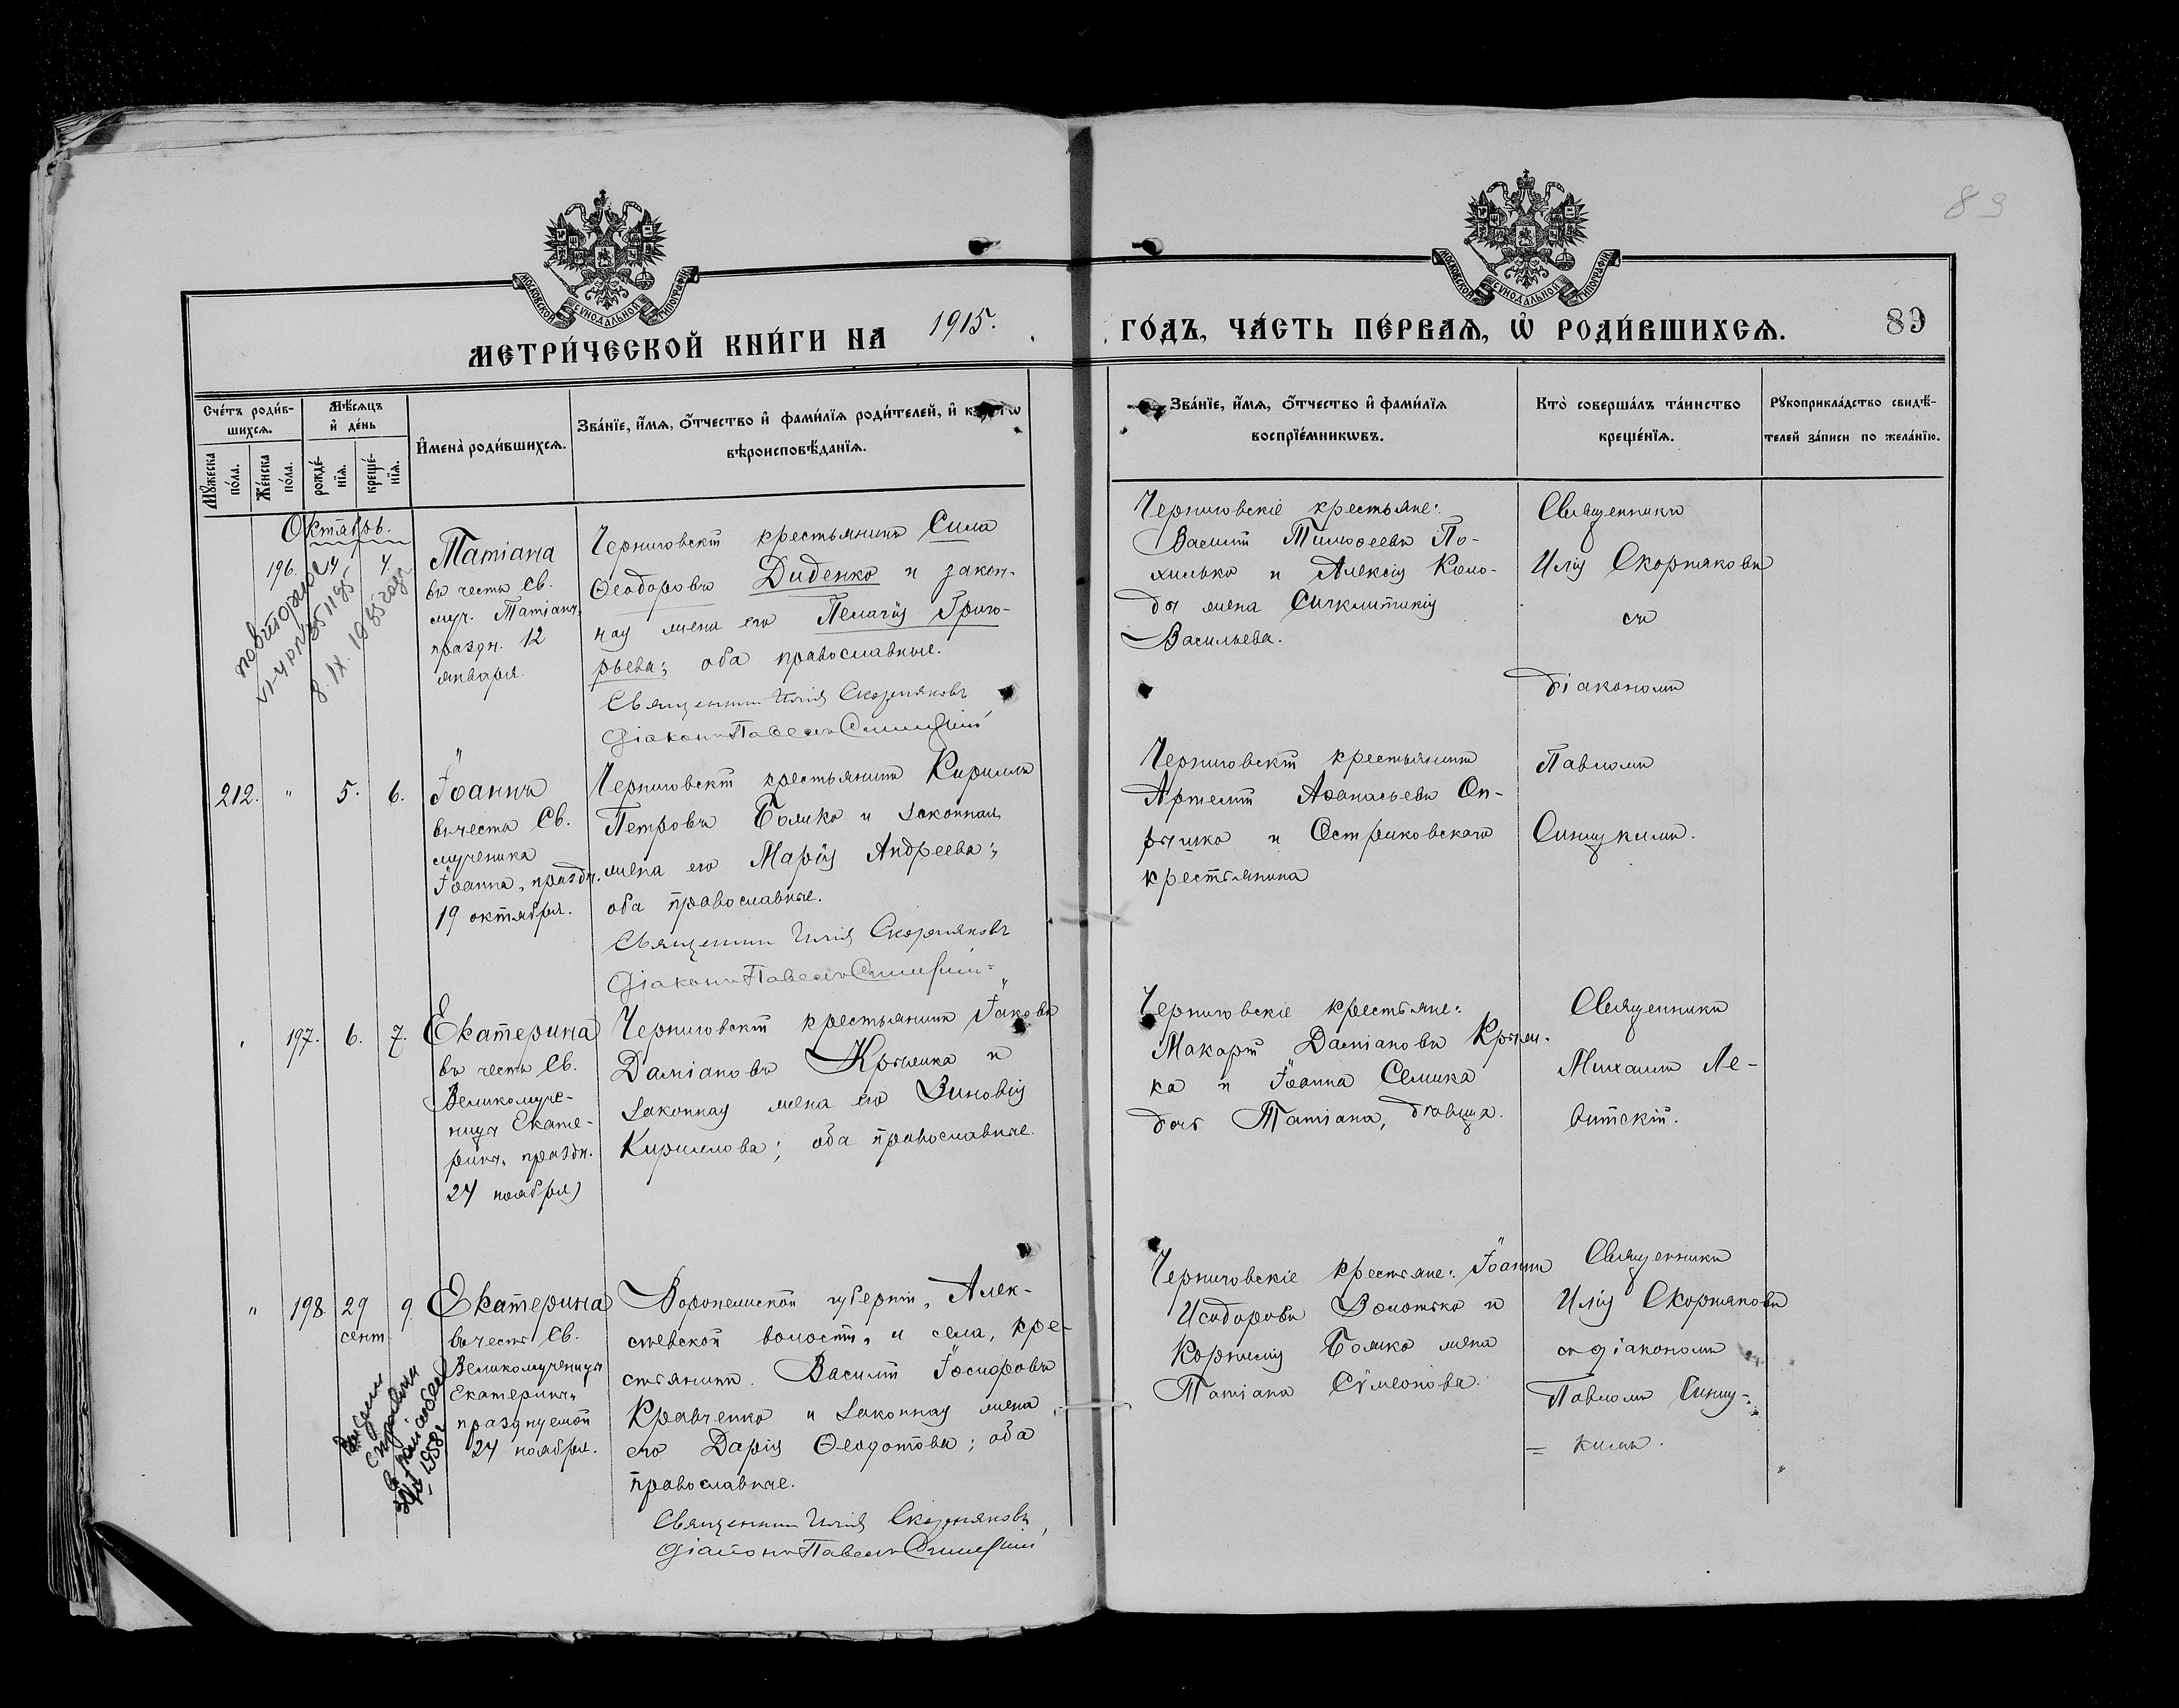 83
МОСКОВСКОЙ СУНОДАЛЬНОЙ ТИПОГРАФІИ
МОСКОВСКОЙ СУНОДАЛЬНОЙ ТИПОГРАФІИ
МЕТРИ́ЧЕСКОЙ КНИ́ГИ НА 1915.
ГО́ДЪ, ЧА́СТЬ ПЕ́РВАѦ, Ѡ҆ РОДИ́ВШИХСѦ. 89
Сче́тъ роди́в-
шихсѧ.
Мѣ́сѧцъ
и҆ де́нь
Мꙋ́жеска по́ла.
Же́нска по́ла.
рожде́-
нїѧ.
креще́-
нїѧ.
И҆мена̀ роди́вшихсѧ.
Зва́нїе, и҆́мѧ, ѻ҆́тчество и҆ фами́лїѧ роди́телей, и҆
вѣроисповѣ́данїѧ.
Зва́нїе, и҆́мѧ, ѻ҆́тчество и҆ фами́лїѧ
воспрїе́мникѡвъ.
Кто̀ соверша́лъ та́инство
креще́нїѧ.
Рꙋкоприкла́дство свидѣ́-
телей за́писи по жела́нїю.
Октябрь.
196. 4 4.
повторное
8. IX. 1985 года
Татіана
въ честь св.
муч. Татіаны,
праздн. 12
января.
Черниговскій крестьянинъ Сила
Ѳеодоровъ Диденко и закон-
ная жена его Пелагія Григо-
рьева; оба православные.
Священник Илія Скорняковъ
Діаконъ Павелъ Синицкій
Черниговскіе крестьяне:
Василій Тимоѳеевъ По-
хилько и Алексія Коло-
ды жена Синклитикія
Васильева.
Священникъ
Илія Скорняковъ
съ
діакономъ
212. " 5. 6.
Іоаннъ
въ честь Св.
мученика
Іоанна, праздн.
19 октября.
Черниговскій крестьянинъ Кириллъ
Петровъ Божко и законная
жена его Марія Андреева;
оба православные.
Священник Илія Скорняковъ
Діаконъ Павелъ Синицкій
Черниговскій крестьянинъ
Артемій Аѳанасьевъ Он-
рышко и Остриковскаго
крестьянина
Павломъ
Синицкимъ.
" 197. 6. 7.
Екатерина
въ честь Св.
Великомуче-
ницы Екате-
рины, праздн.
24 ноября
Черниговскій крестьянинъ Іаковъ
Даміановъ Крыжка и
законная жена его Зиновія
Кириллова; оба православные.
Черниговскіе крестьяне:
Макарій Даміановъ Крыж-
ка и Іоанна Семика
дочь Татіана, дѣвица.
Священникъ
Михаилъ Ле-
витскій.
" 198. 29 9.
сент.
1958
Екатерина
въ честь Св.
Великомученицы
Екатерины,
празднуемой
24 ноября.
Воронежской губерніи, Алек-
сѣевской волости, и села, кре-
стьянинъ Василій Іосифовъ
Кравченко и законная жена
его Дарія Ѳеодотова; оба
православные.
Священник Илія Скорняковъ
Діаконъ Павелъ Синицкій
Черниговскіе крестьяне: Іоаннъ
Исидоровъ Золотько и
Корнилія Божко жена
Татіана Сѵмеонова.
Священникъ
Илія Скорняковъ
съ діакономъ
Павломъ Синиц-
= кимъ.